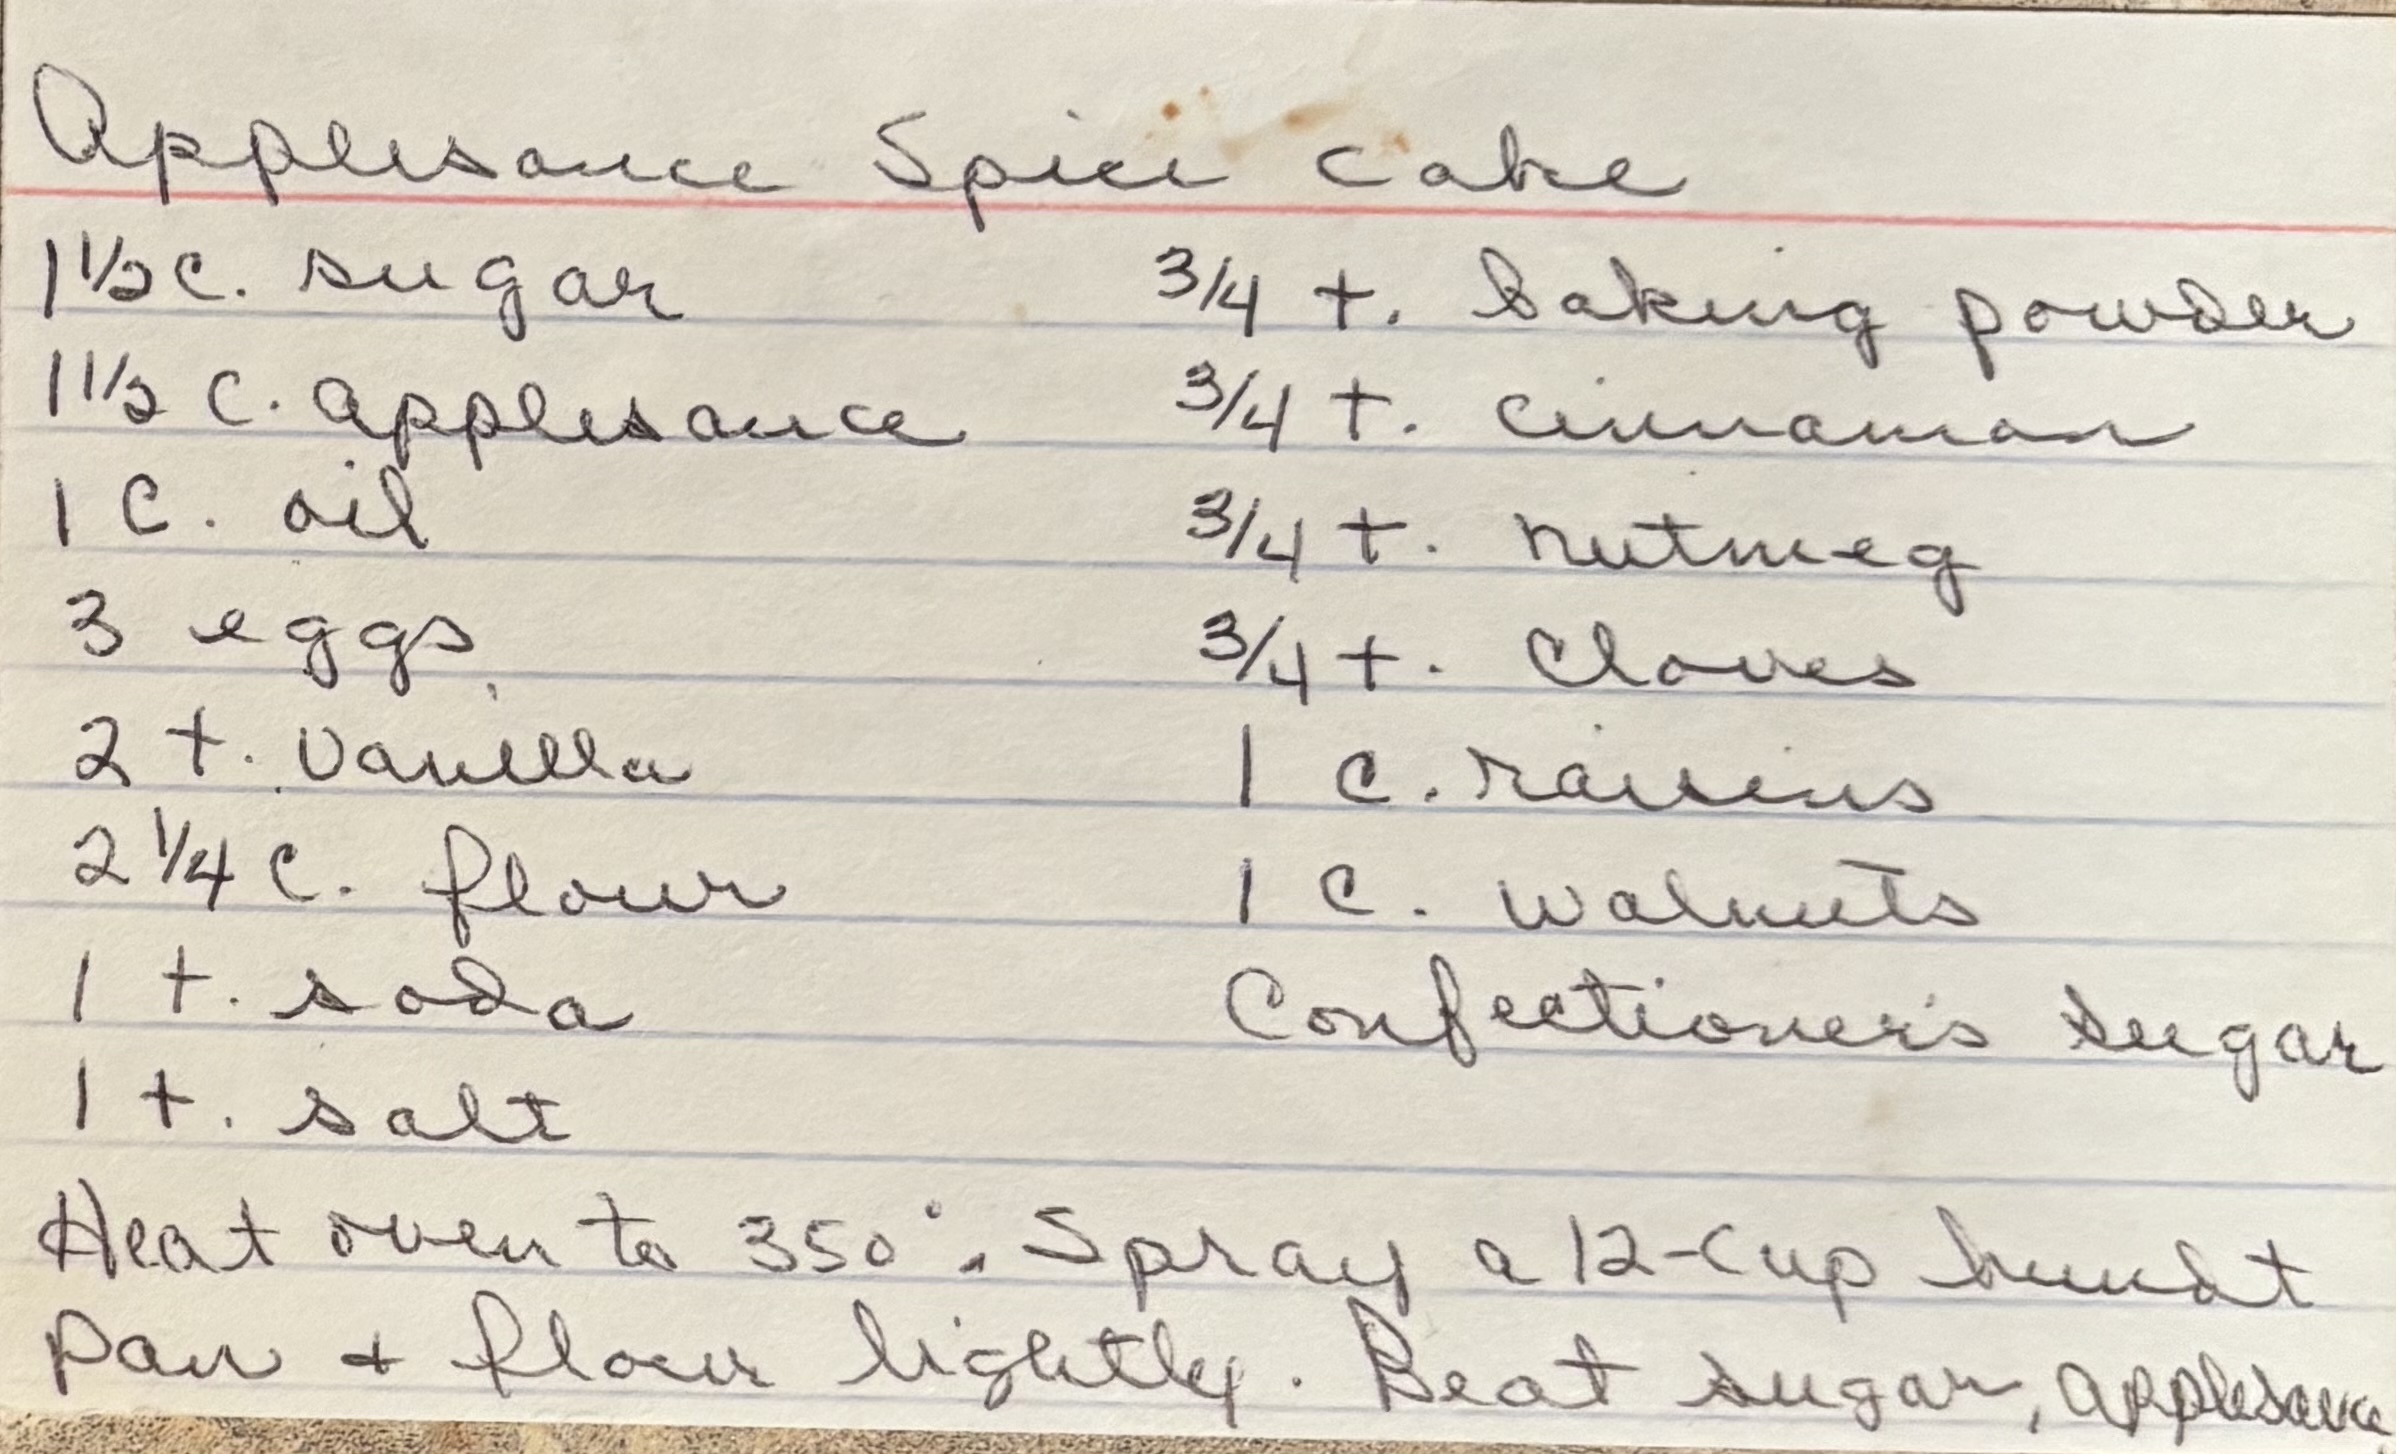 Applesauce Spice Cake
1 1/2 c. sugar
1 1/2 c. applesauce
1 c. oil
3 eggs
2 t. vanilla
2 1/4 c. flour
1 t. soda
1 t. salt
3/4 t. baking powder
3/4 t. cinnamon
3/4 t. nutmeg
3/4 t. cloves
1 c. raisins
1 c. walnuts
Confectioner's sugar
Heat oven to 350°. Spray a 12-cup bundt
pan + flour lightly. Beat sugar, applesauce